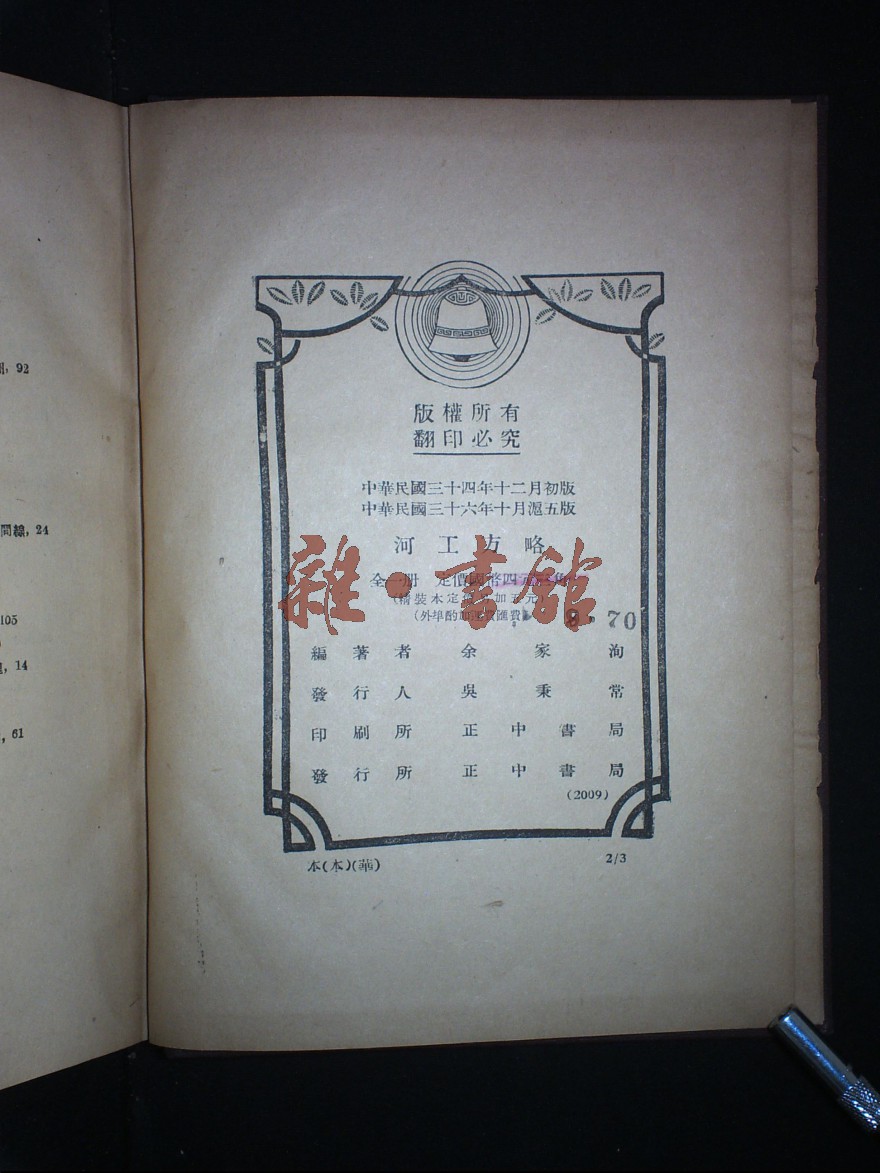 版權所有
翻印必究
中華民國三十四年十二月初版
中華民國三十六年十月滬五版
河工方略
全一册 定價國幣四元
(外埠酌加運費匯費)
70
編著者 余家洵
發行人 吳秉常
印刷所 正中書局
發行所 正中書局
(2009)
本(本)(華)
2/3
雜·書館
92
間線, 24
105
14
, 61